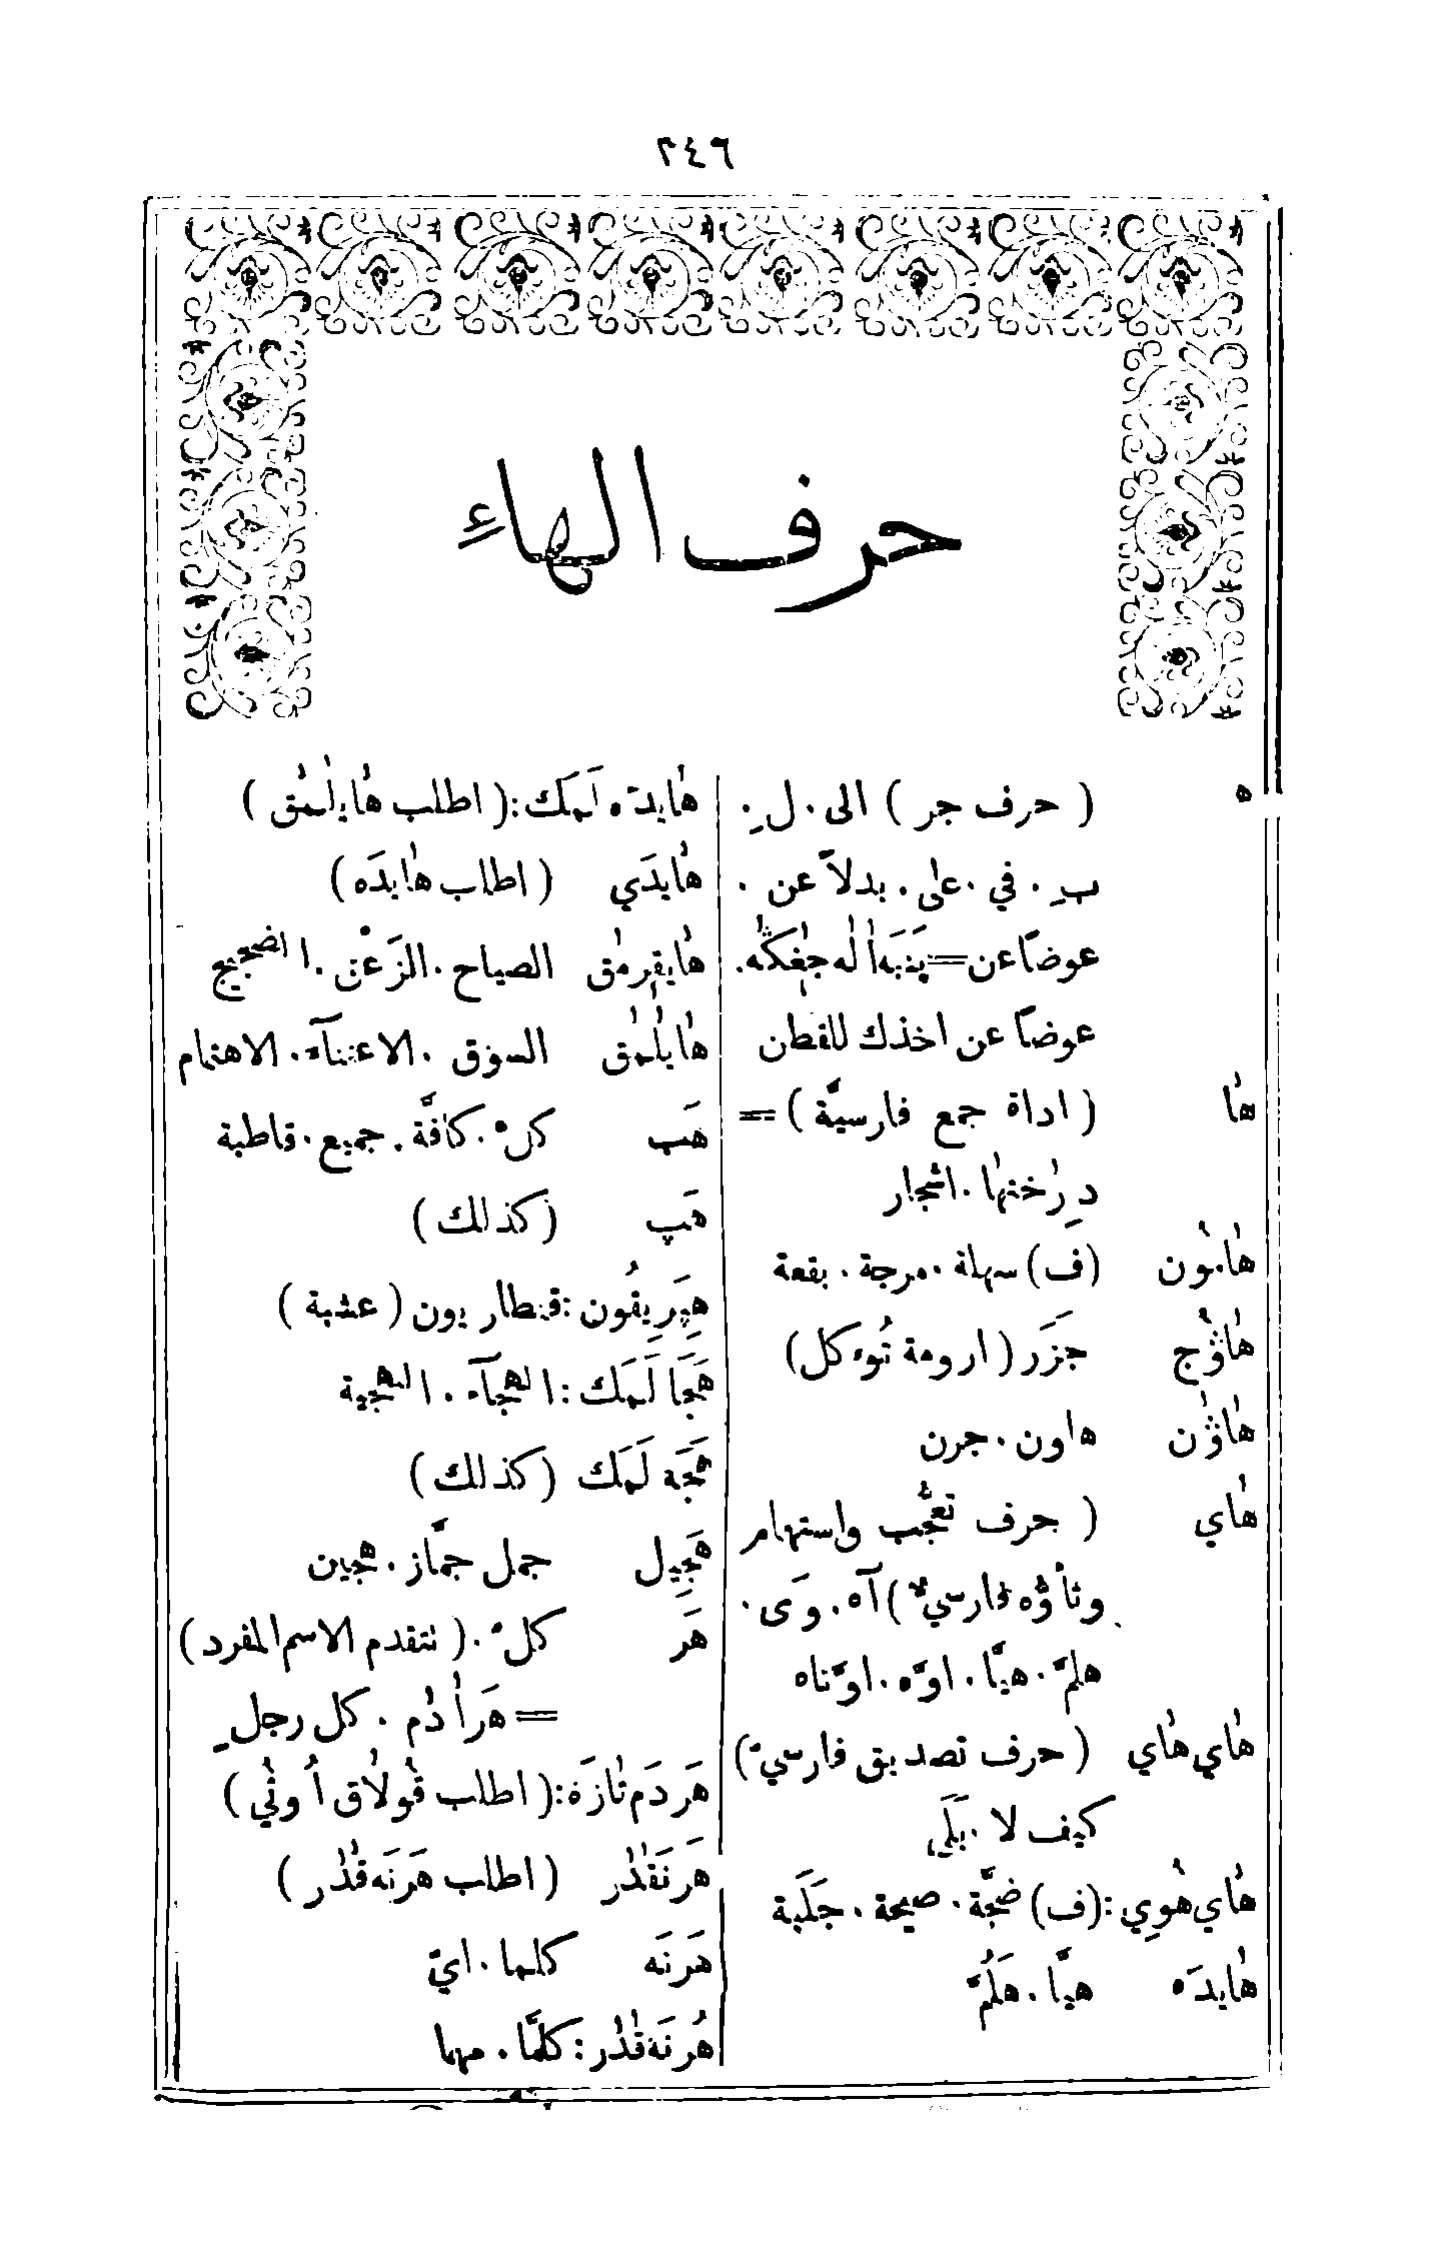 ٢٤٦
حرف الهاء
ه ( حرف جر ) الى . لِ .
بِ . في . على . بدلاً عن .
عوضاً عن =
عوضاً عن اخذك للقطن
هٰا ( اداة جمع فارسيَّة ) =
دِرَٰختهٰا . اشجار
هٰامُون (ف) سهلة . مرجة . بقعة
هٰاوُج جَزَر ( ارومة تُوءكل)
هٰاوَٰن هاون . جرن
هٰاي ( حرف تعجُّب واستهام
وتأوُّه فارسيّ ) آه . وَى .
هلمَّ . هيَّا . اوَّه . اوَّتاه
هٰاي هٰاي ( حرف تصديق فارسيّ )
كيف لا . بَلَى
هٰاي هُوِي : (ف) ضجَّة . صيحة . جَلَبة
هٰايدَه هيَّا . هَلُمَّ
هٰايدَه لَمَك : ( اطلب هٰايلٰمَق )
هٰايدَي ( اطلب هٰايدَه )
هٰايقِرمٰق الصياح . الزَعْق . الضجيج
هٰايلٰمٰق السوق . الاعتنآء . الاهتمام
هَب كلّ . كافَّة . جميع . قاطبة
هَپ (كذلك )
هِپَرِيقُون : قنطاريون ( عشبة )
هَجَا لَمَك : الهجآء . التهجية
هَجَه لَمَك (كذلك )
هَجِيل جمل جمَّاز . هجين
هَر كلّ . ( تتقدم الاسم المفرد )
= هَر اٰدَٰم . كل رجلٍ
هَر دَم تٰازَه : ( اطلب قُولٰاق اُوتُي )
هَرنَقَٰدٰر ( اطلب هَرنَه قَٰدٰر )
هَرنَه كلما . ايّ
هَرنَه قَٰدٰر : كلَّما . مهما